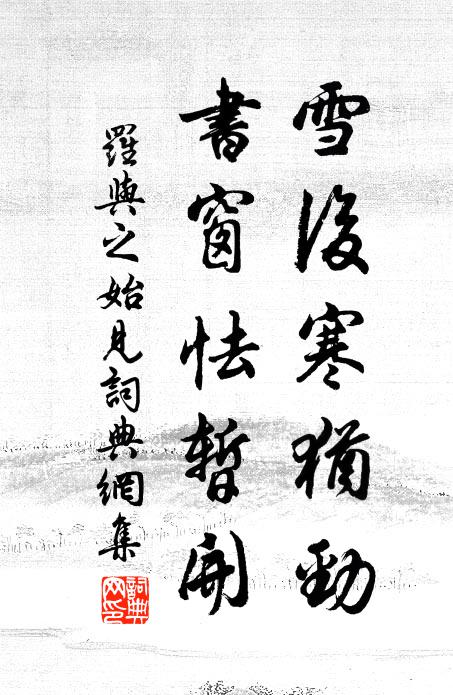 雪後寒猶勁
書窗怯暫開
羅與之始見詞典網集
詞典
网印